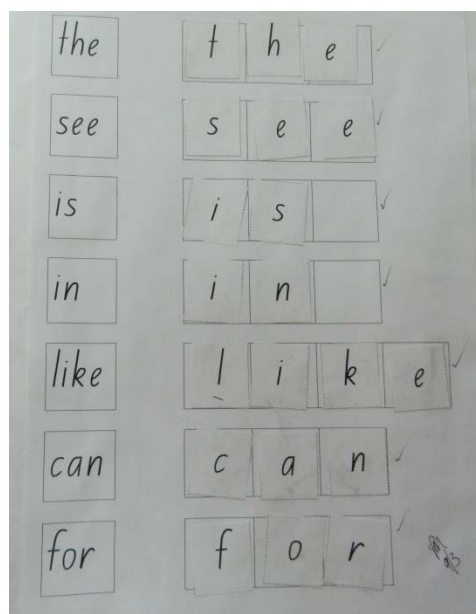 the t h e
see s e e
is i s
in i n
like l i k e
can c a n
for f o r